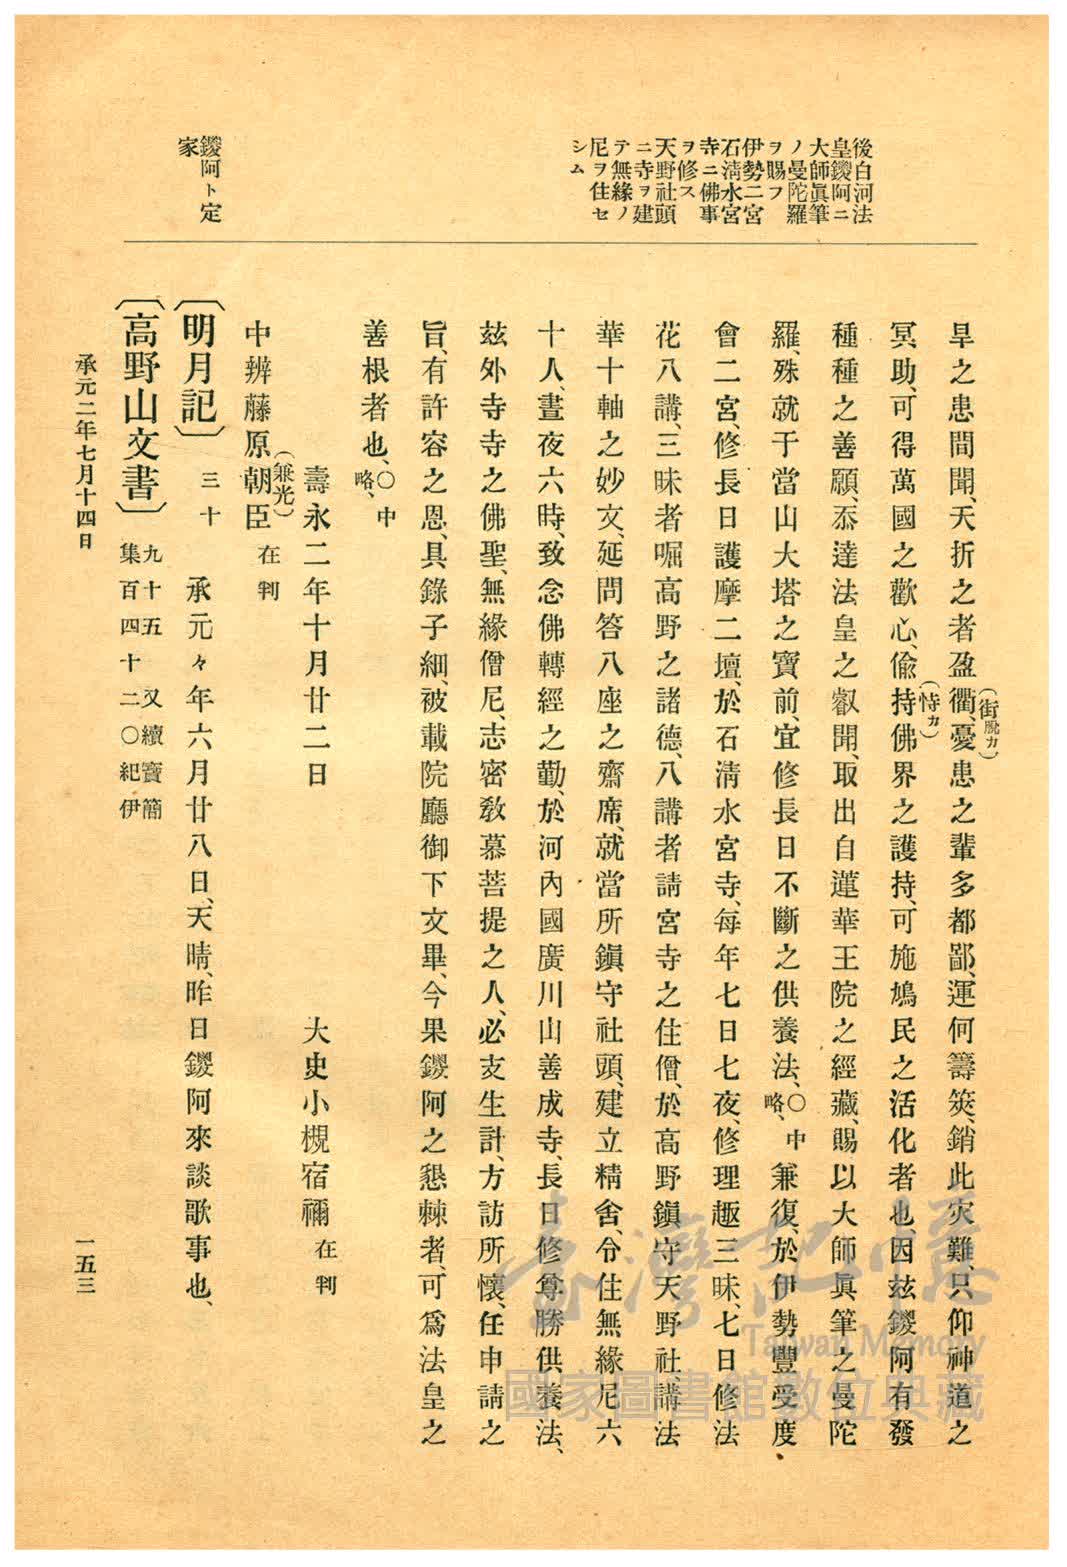 後白河法
皇鑁阿ニ
大師眞筆
ノ曼陀羅
ヲ賜フ
伊勢二宮
石淸水宮
寺ニ佛事
ヲ修ス
天野社頭
ニ寺ヲ建
テ無緣ノ
尼ヲ住セ
シム
旱之患間聞、夭折之者盈衢、憂患之輩多都鄙、運何籌筴、銷此灾難、只仰神道之
(街脫カ)
冥助、可得萬國之歡心、偸持佛界之護持、可施鳩民之活化者也、因玆鑁阿有發
(恃カ)
種種之善願、忝達法皇之叡聞、取出自蓮華王院之經藏、賜以大師眞筆之曼陀
羅、殊就于當山大塔之寶前、宜修長日不斷之供養法、〇中略、兼復、於伊勢豐受度
會二宮、修長日護摩二壇、於石淸水宮寺、每年七日七夜、修理趣三昧、七日修法
花八講、三昧者啒高野之諸德、八講者請宮寺之住僧、於高野鎭守天野社、講法
華十軸之妙文、延問答八座之齋席、就當所鎭守社頭、建立精舍、令住無緣尼六
十人、晝夜六時、致念佛轉經之勤、於河內國廣川山善成寺、長日修尊勝供養法、
玆外寺寺之佛聖、無緣僧尼、志密敎慕菩提之人、必支生計、方訪所懷、任申請之
旨、有許容之恩、具錄子細、被載院廳御下文畢、今果鑁阿之懇棘者、可爲法皇之
善根者也、〇中略、
壽永二年十月廿二日
大史小槻宿禰在判
中辨藤原朝臣在判
(兼光)
鑁阿ト定
家
〔明月記〕三十 承元々年六月廿八日、天晴、昨日鑁阿來談歌事也、
〔高野山文書〕九十五 又續寶簡
集百四十二〇紀伊
承元二年七月十四日
一五三
臺灣記憶
Taiwan Memory
國家圖書館數位典藏